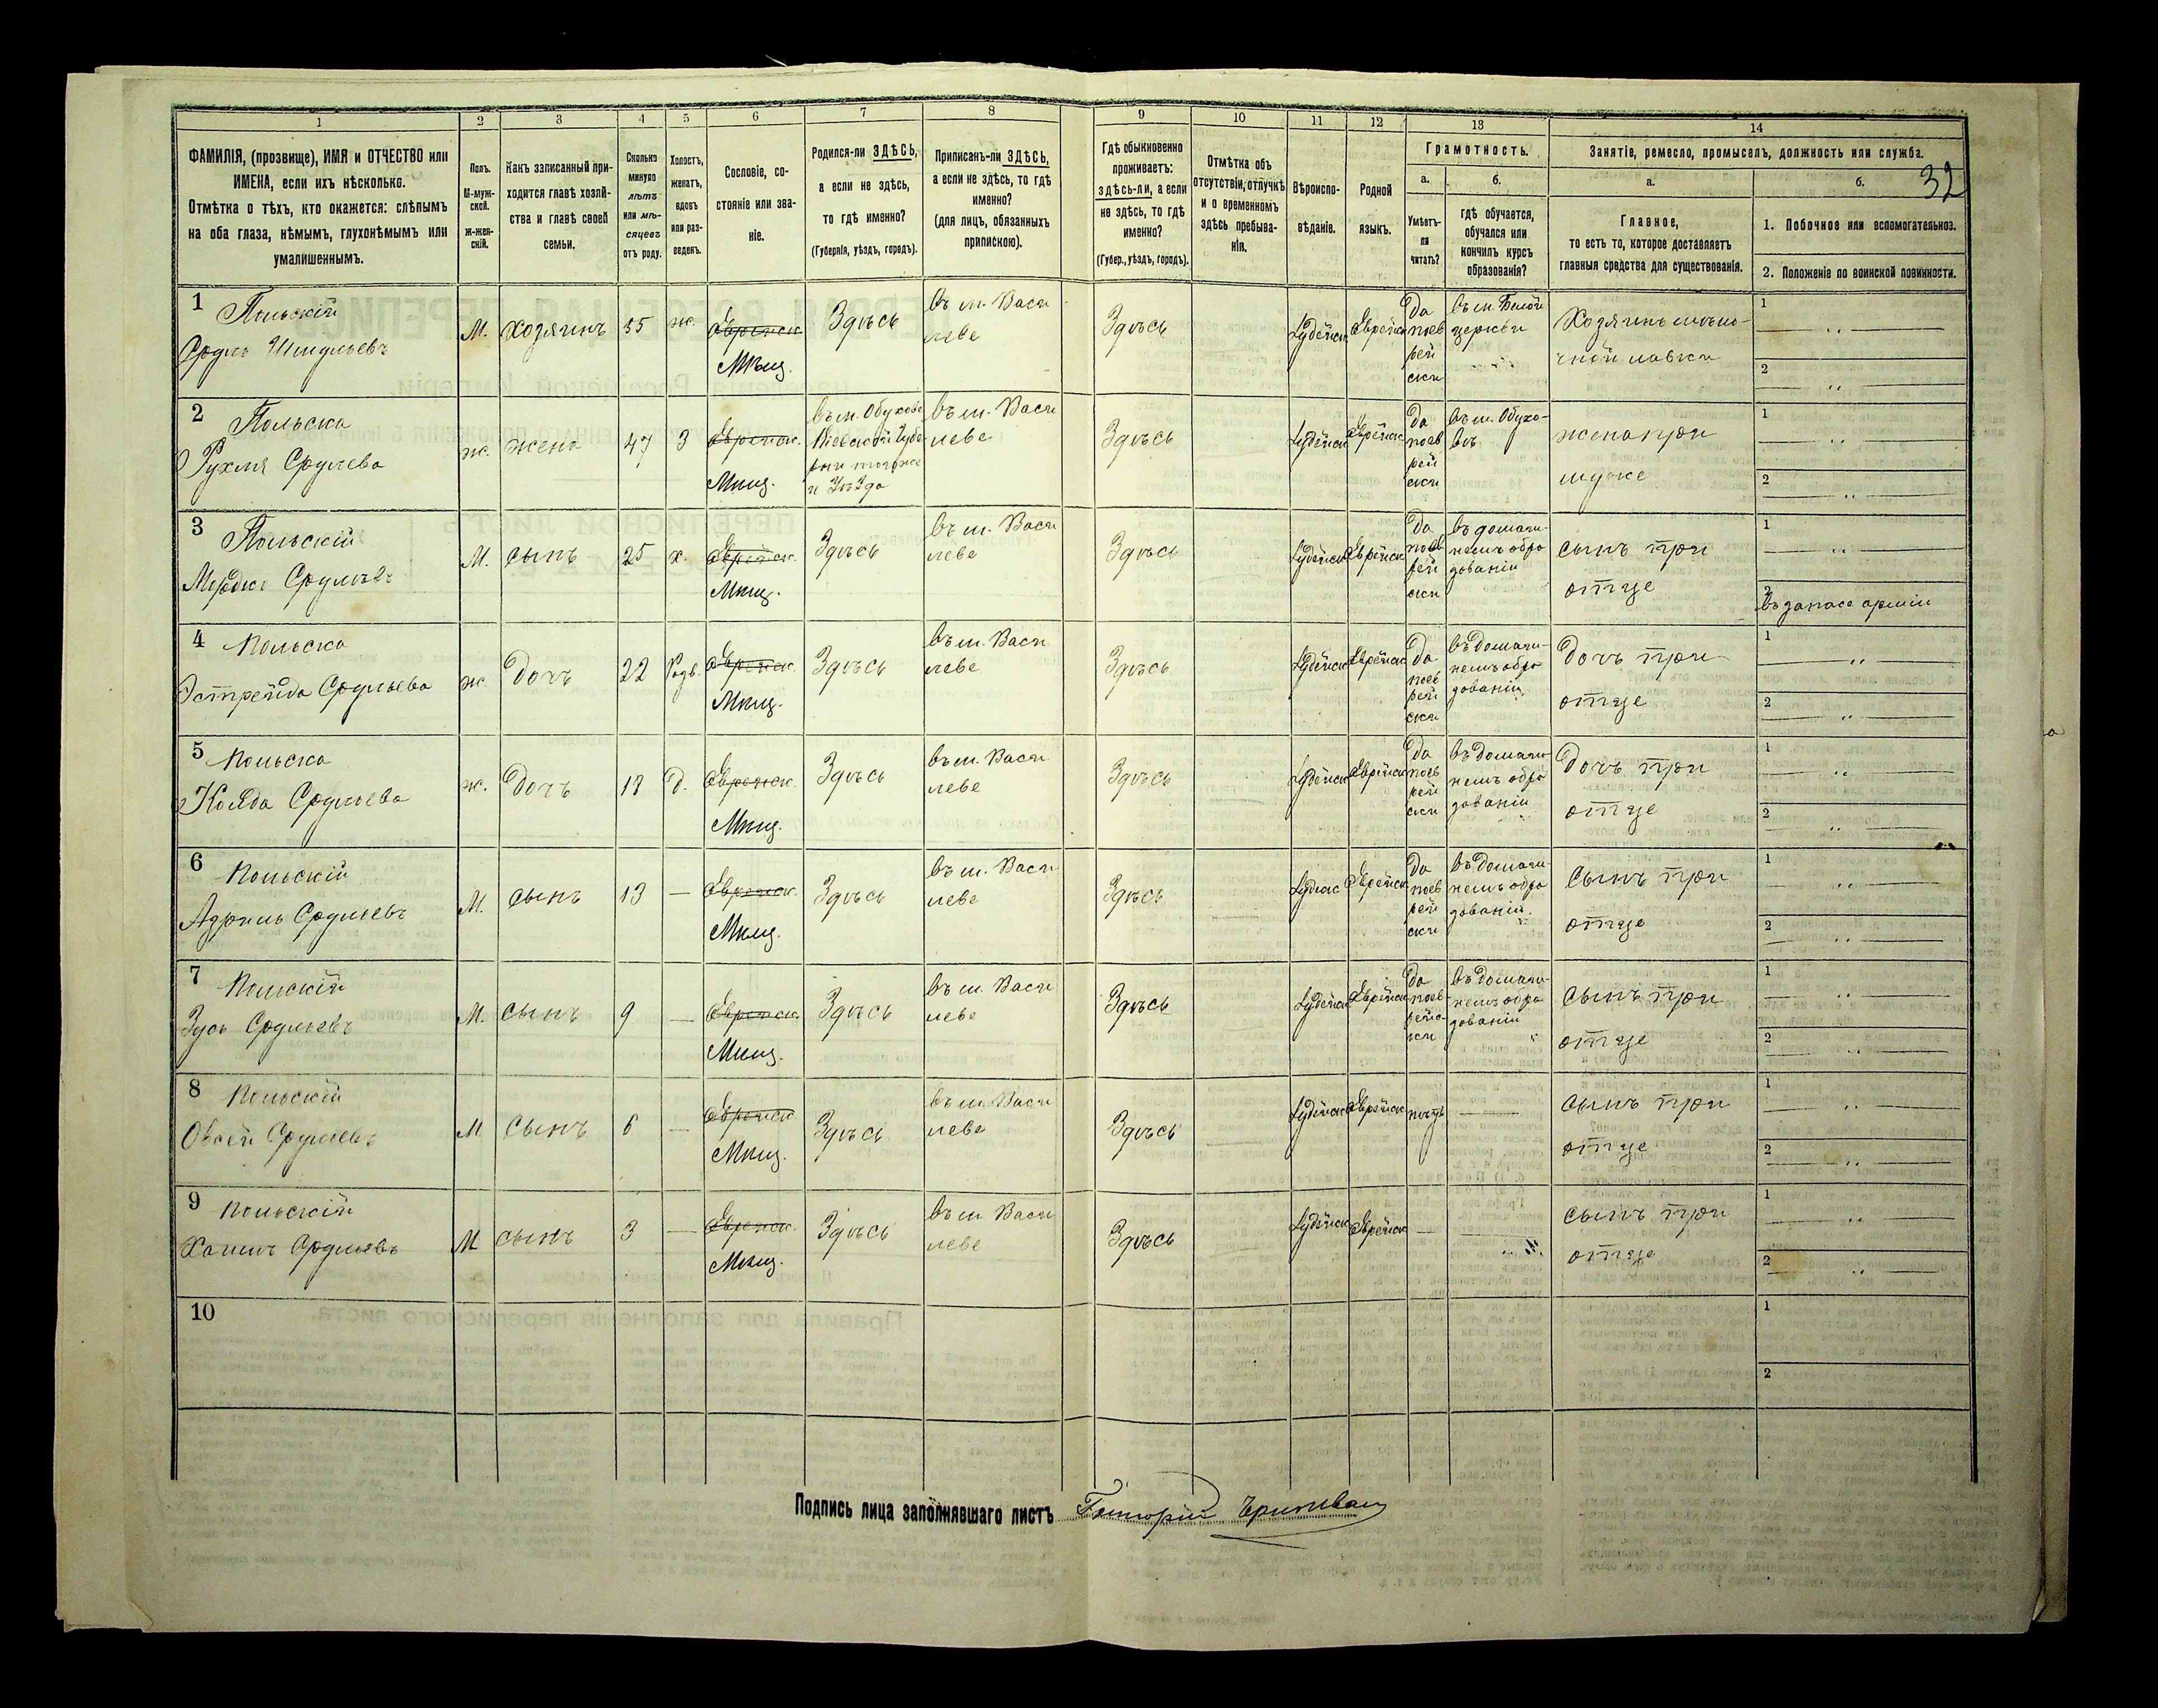 32
1
2
3
4
5
6
7
8
9
10
11
12
13
14
ФАМИЛІЯ, (прозвище), ИМЯ и ОТЧЕСТВО или
ИМЕНА, если ихъ нѣсколько.
Отмѣтка о тѣхъ, кто окажется: слѣпымъ
на оба глаза, нѣмымъ, глухонѣмымъ или
умалишеннымъ.
Полъ.
М-муж-
ской.
Ж-жен-
скій.
Какъ записанный при-
ходится главѣ хозяй-
ства и главѣ своей
семьи.
Сколько
минуло
лѣтъ
или мѣ-
сяцевъ
отъ роду.
Холостъ,
женатъ,
вдовъ
или раз-
веденъ.
Сословіе, со-
стояніе или зва-
ніе.
Родился-ли ЗДѢСЬ,
а если не здѣсь,
то гдѣ именно?
(Губернія, уѣздъ, городъ).
Приписанъ-ли ЗДѢСЬ,
а если не здѣсь, то гдѣ
именно?
(для лицъ, обязанныхъ
припискою).
Гдѣ обыкновенно
проживаетъ:
здѣсь-ли, а если
не здѣсь, то гдѣ
именно?
(Губер., уѣздъ, городъ).
Отмѣтка объ
отсутствіи, отлучкѣ
и о временномъ
здѣсь пребыва-
ніи.
Вѣроиспо-
вѣданіе.
Родной
языкъ.
Грамотность.
а.
Умѣетъ-
ли
читать?
б.
гдѣ обучается,
обучался или
кончилъ курсъ
образованія?
Занятіе, ремесло, промыселъ, должность или служба.
а.
Главное,
то есть то, которое доставляетъ
главныя средства для существованія.
б.
1. Побочное или вспомогательное.
2. Положеніе по воинской повинности.
1 Польскій
Срулъ
М. хозяинъ 55 ж. Еврейск. Мѣщ. Здѣсь
въ м. Васи
леве
Здѣсь Іудейск Еврейск
Да поев рей ски
въ м. Белой
церкви
Хозяинъ
чной лавки
1
2
2 Польска
Рухля Срулева
ж. жена 47 З Еврейск. Мѣщ.
въ м. Обухове
Кіевской Губе
рни тогоже
и Уезда
въ м. Васи
леве
Здѣсь Іудейск Еврейск
да поев рей ски
въ м. Обухо-
въ
жена при
муже
1
2
3 Польскій
Мордко Срулевъ
М. сынъ 25 х. Еврейск. Мѣщ. Здѣсь
въ м. Васи
леве
Здѣсь Іудейск Еврейск
Да поев рей ски
въ домаш-
немъ обра
зованіи
сынъ при
отце
1
2
въ запасе арміи
4 Польска
Эстрейда Срульева
ж. Дочь 22 Разв. Еврейск. Мѣщ. Здѣсь
въ м. Васи
леве
Здѣсь Іудейск Еврейск
Да поев рей ски
въ домаш-
немъ обра
зованіи
Дочь при
отце
1
2
5 Польска
Срульева
ж. Дочь Д. Еврейск. Мѣщ. Здѣсь
въ м. Васи
леве
Здѣсь Іудейск Еврейск
Да поев рей ски
въ домаш-
немъ обра
зованіи
Дочь при
отце
1
2
6 Польскій
Азріиль Срулевъ
М. сынъ 13 — Еврейск. Мѣщ. Здѣсь
въ м. Васи
леве
Здѣсь Еврейск
Да поев рей ски
въ домаш-
немъ обра
зованіи.
Сынъ при
отце
1
2
7 Польскій
Зусь Срулевъ
М. сынъ 9 — Еврейск. Мѣщ. Здѣсь
въ м. Васи
леве
Здѣсь Іудейск Еврейск
Да поев- рейс- ски
въ домаш-
немъ обра
зованіи
Сынъ при
отце
1
2
8 Польскій
Овсей Срулевъ
М Сынъ 6 — Еврейск Мѣщ. Здѣсь
въ м. Васи
леве
Здѣсь Іудейск Еврейск —
Сынъ при
отце
1
2
9 Польскій
Срулевъ
М сынъ 3 — Еврейск. Мѣщ. Здѣсь
въ м Васи
леве
Здѣсь Іудейск Еврейск — —
сынъ при
отце
1
2
10
1
2
Подпись лица заполнявшаго листъ